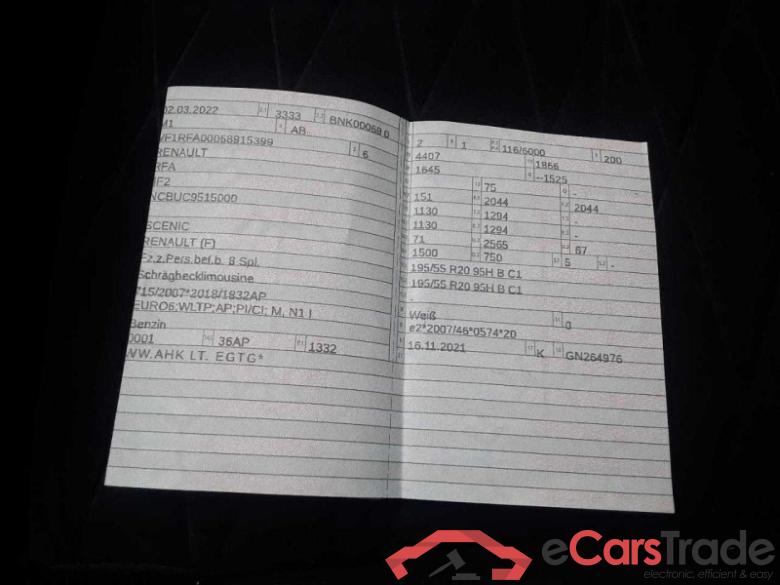 02.03.2022 3333 BNK00069 0
M1 AB..
VF1RFA00068915399 6
RENAULT
RFA
NF2
NCBUC9515000
SCENIC
RENAULT (F)
Fz.z.Pers.bef.b. 8 Spl.
Schräghecklimousine
715/2007*2018/1832AP
EURO6;WLTP;AP;PI/CI; M, N1 I
Benzin
0001 36AP 1332
WW.AHK LT. EGTG*
2 1 116/6000 200
4407 1866
1645 --1525
75 -
151 2044 2044
1130 1294 -
1130 1294 -
71 2565 67
1500 750 5 -
195/55 R20 95H B C1
195/55 R20 95H B C1
-
Weiß 0
e2*2007/46*0574*20
16.11.2021 K GN264976
eCarsTrade
electronic, efficient & easy